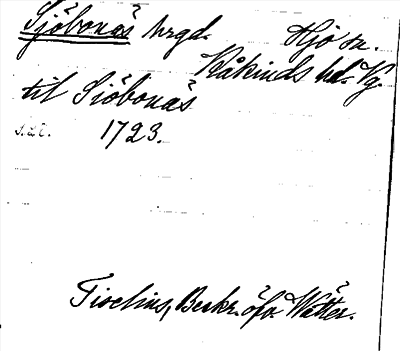 Sjöbonäs hrgd. Hjo sn.
Kåkinds hd. Vg.
til Siöbonäs
s. 22. 1723.
Tiselius, Beskr. öfv. Wätter.